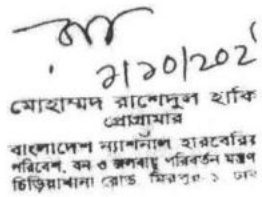 ২/১০/202
মোহাম্মদ রাশেদুল হাকি
প্রোগ্রামার
বাংলাদেশ ন্যাশনাল হারবেরি
পরিবেশ, বন ও জলবায়ু পরিবর্তন
চিড়িয়াখানা রোড মিরপুর-১